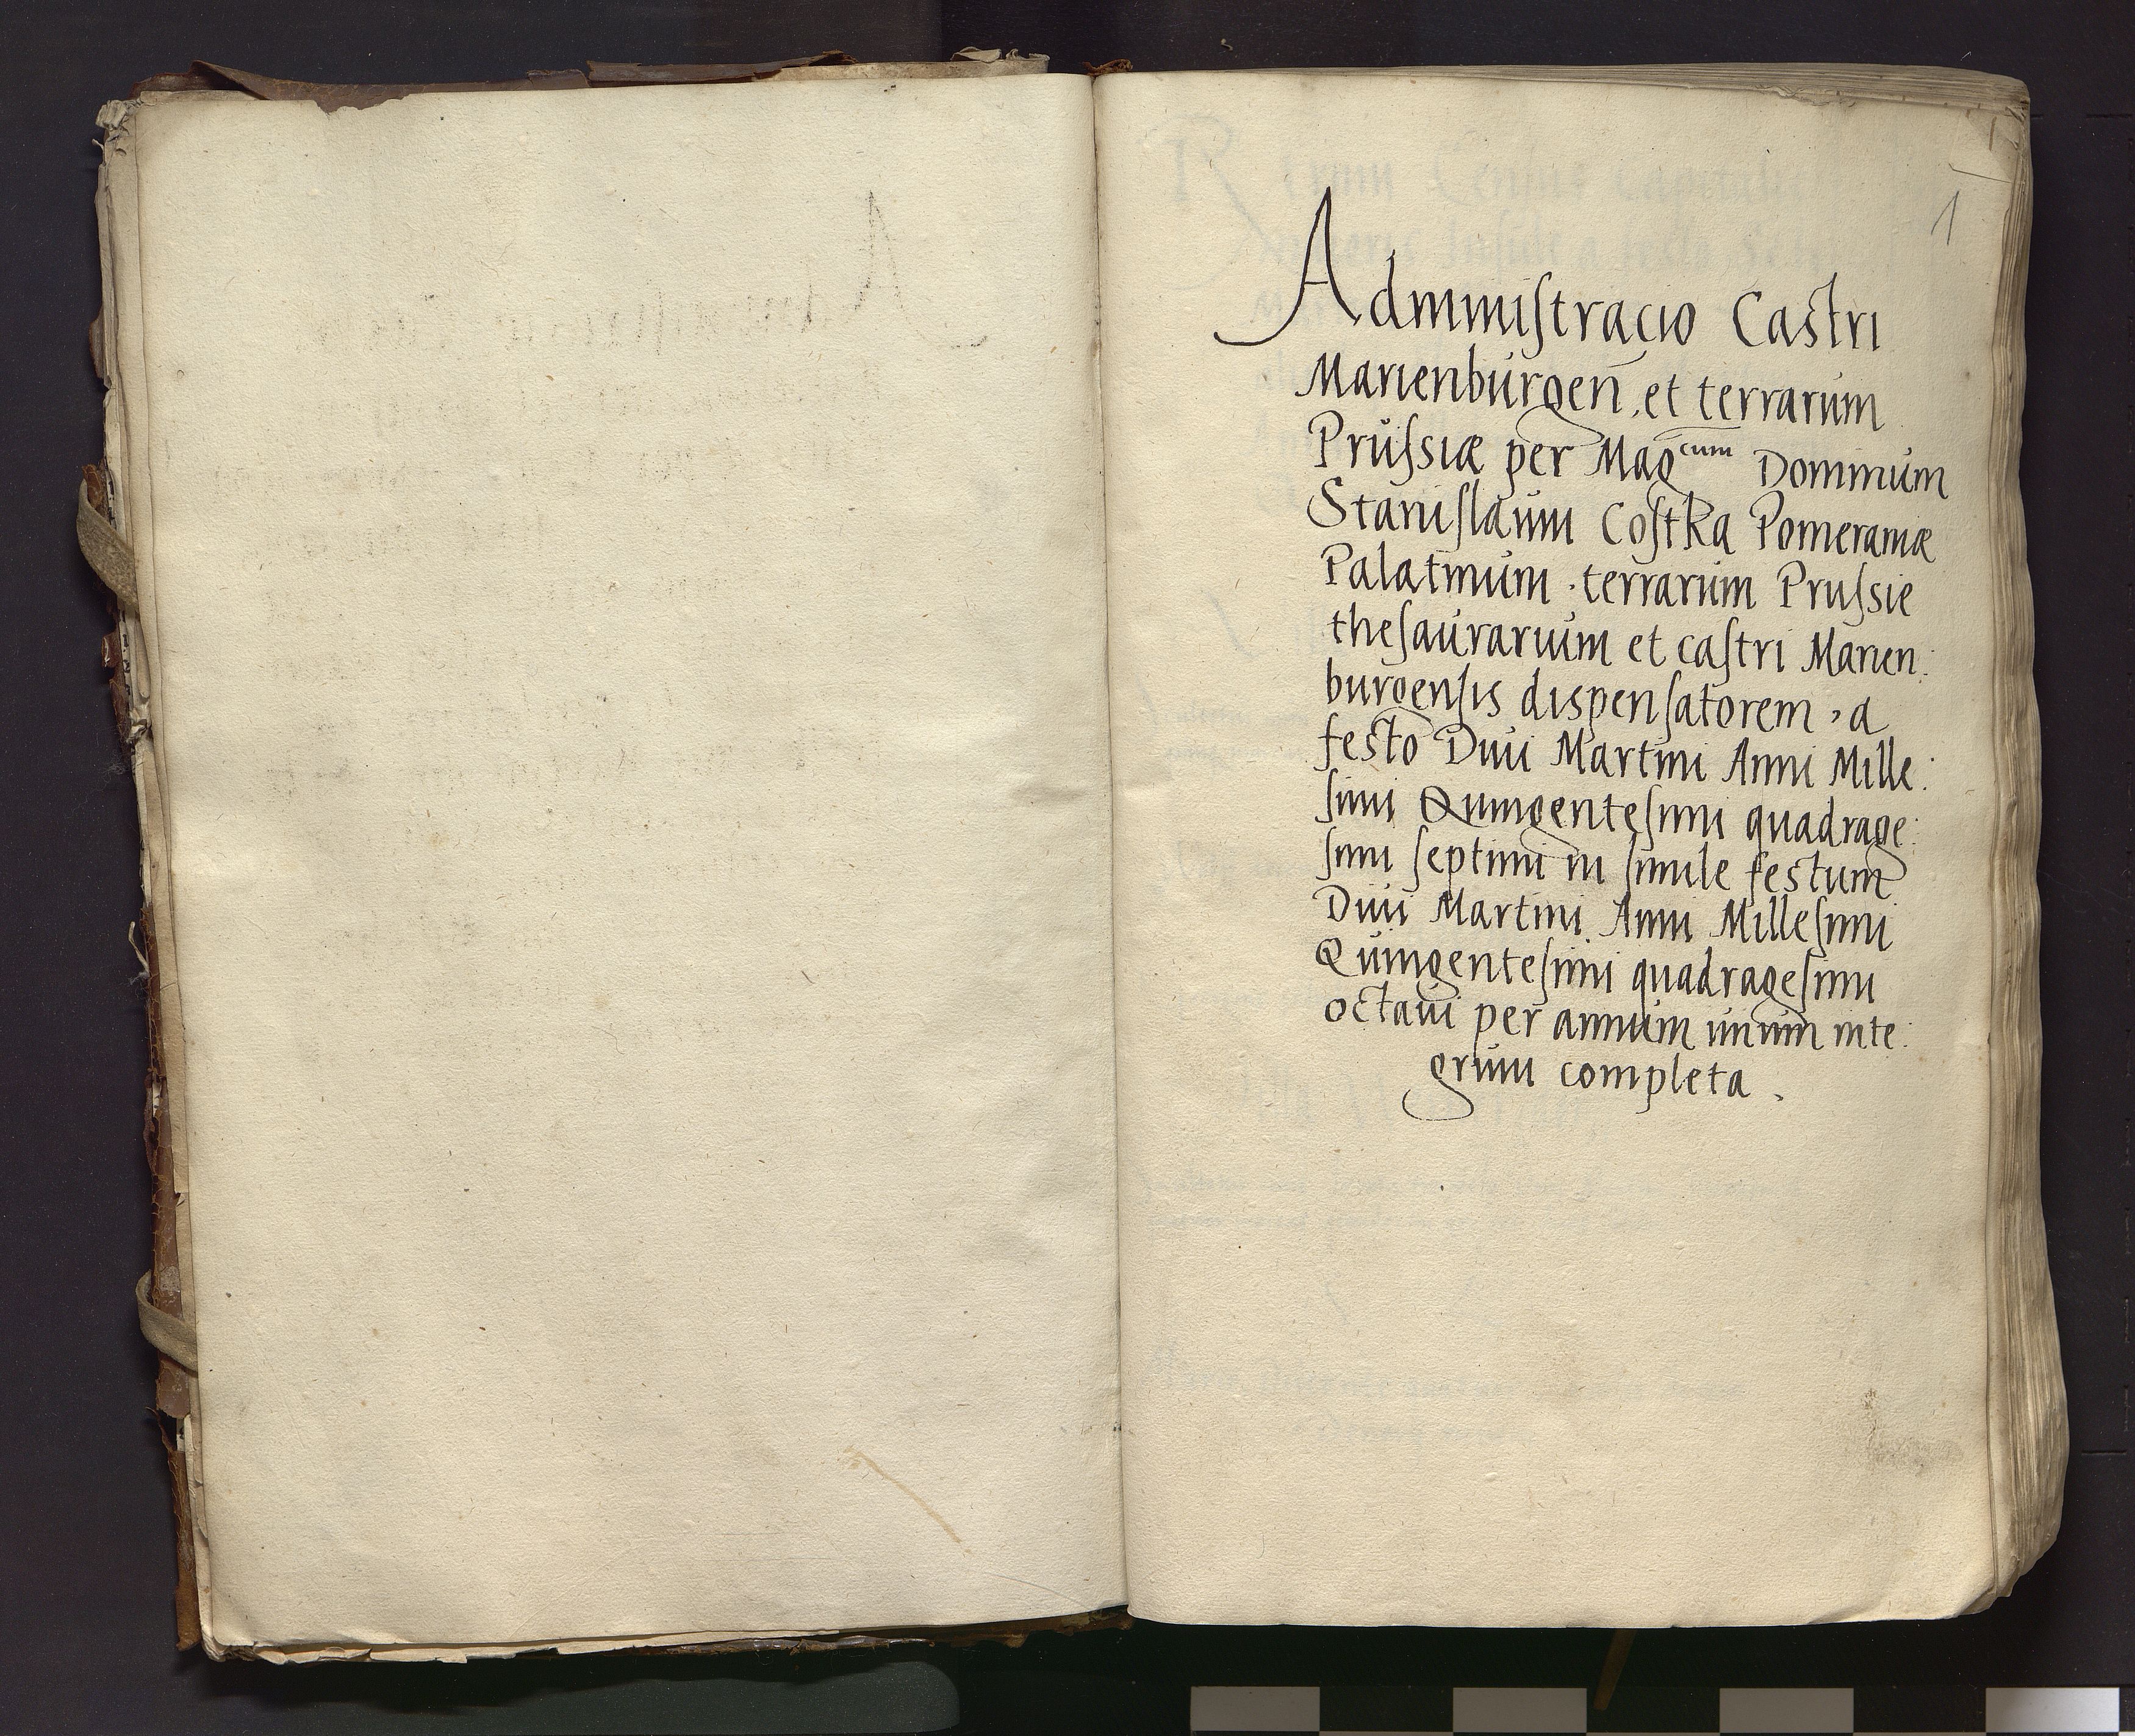 1
Administracio Castri
Marienburgeñ, et terrarum
Prussiæ per Mag^cum Dominum
Stanislaum Costka Pomeraniæ
Palatinum, terrarum Prussie
thesaurarium et castri Marien:
burgensis dispensatorem, a
festo Diui Martini Anni Mille:
simi Quingentesimi quadrage:
simi septimi in simile festum
Diui Martini Anni Millesimi
Quingentesimi quadragesimi
octaui per annum unum inte:
grum completa.